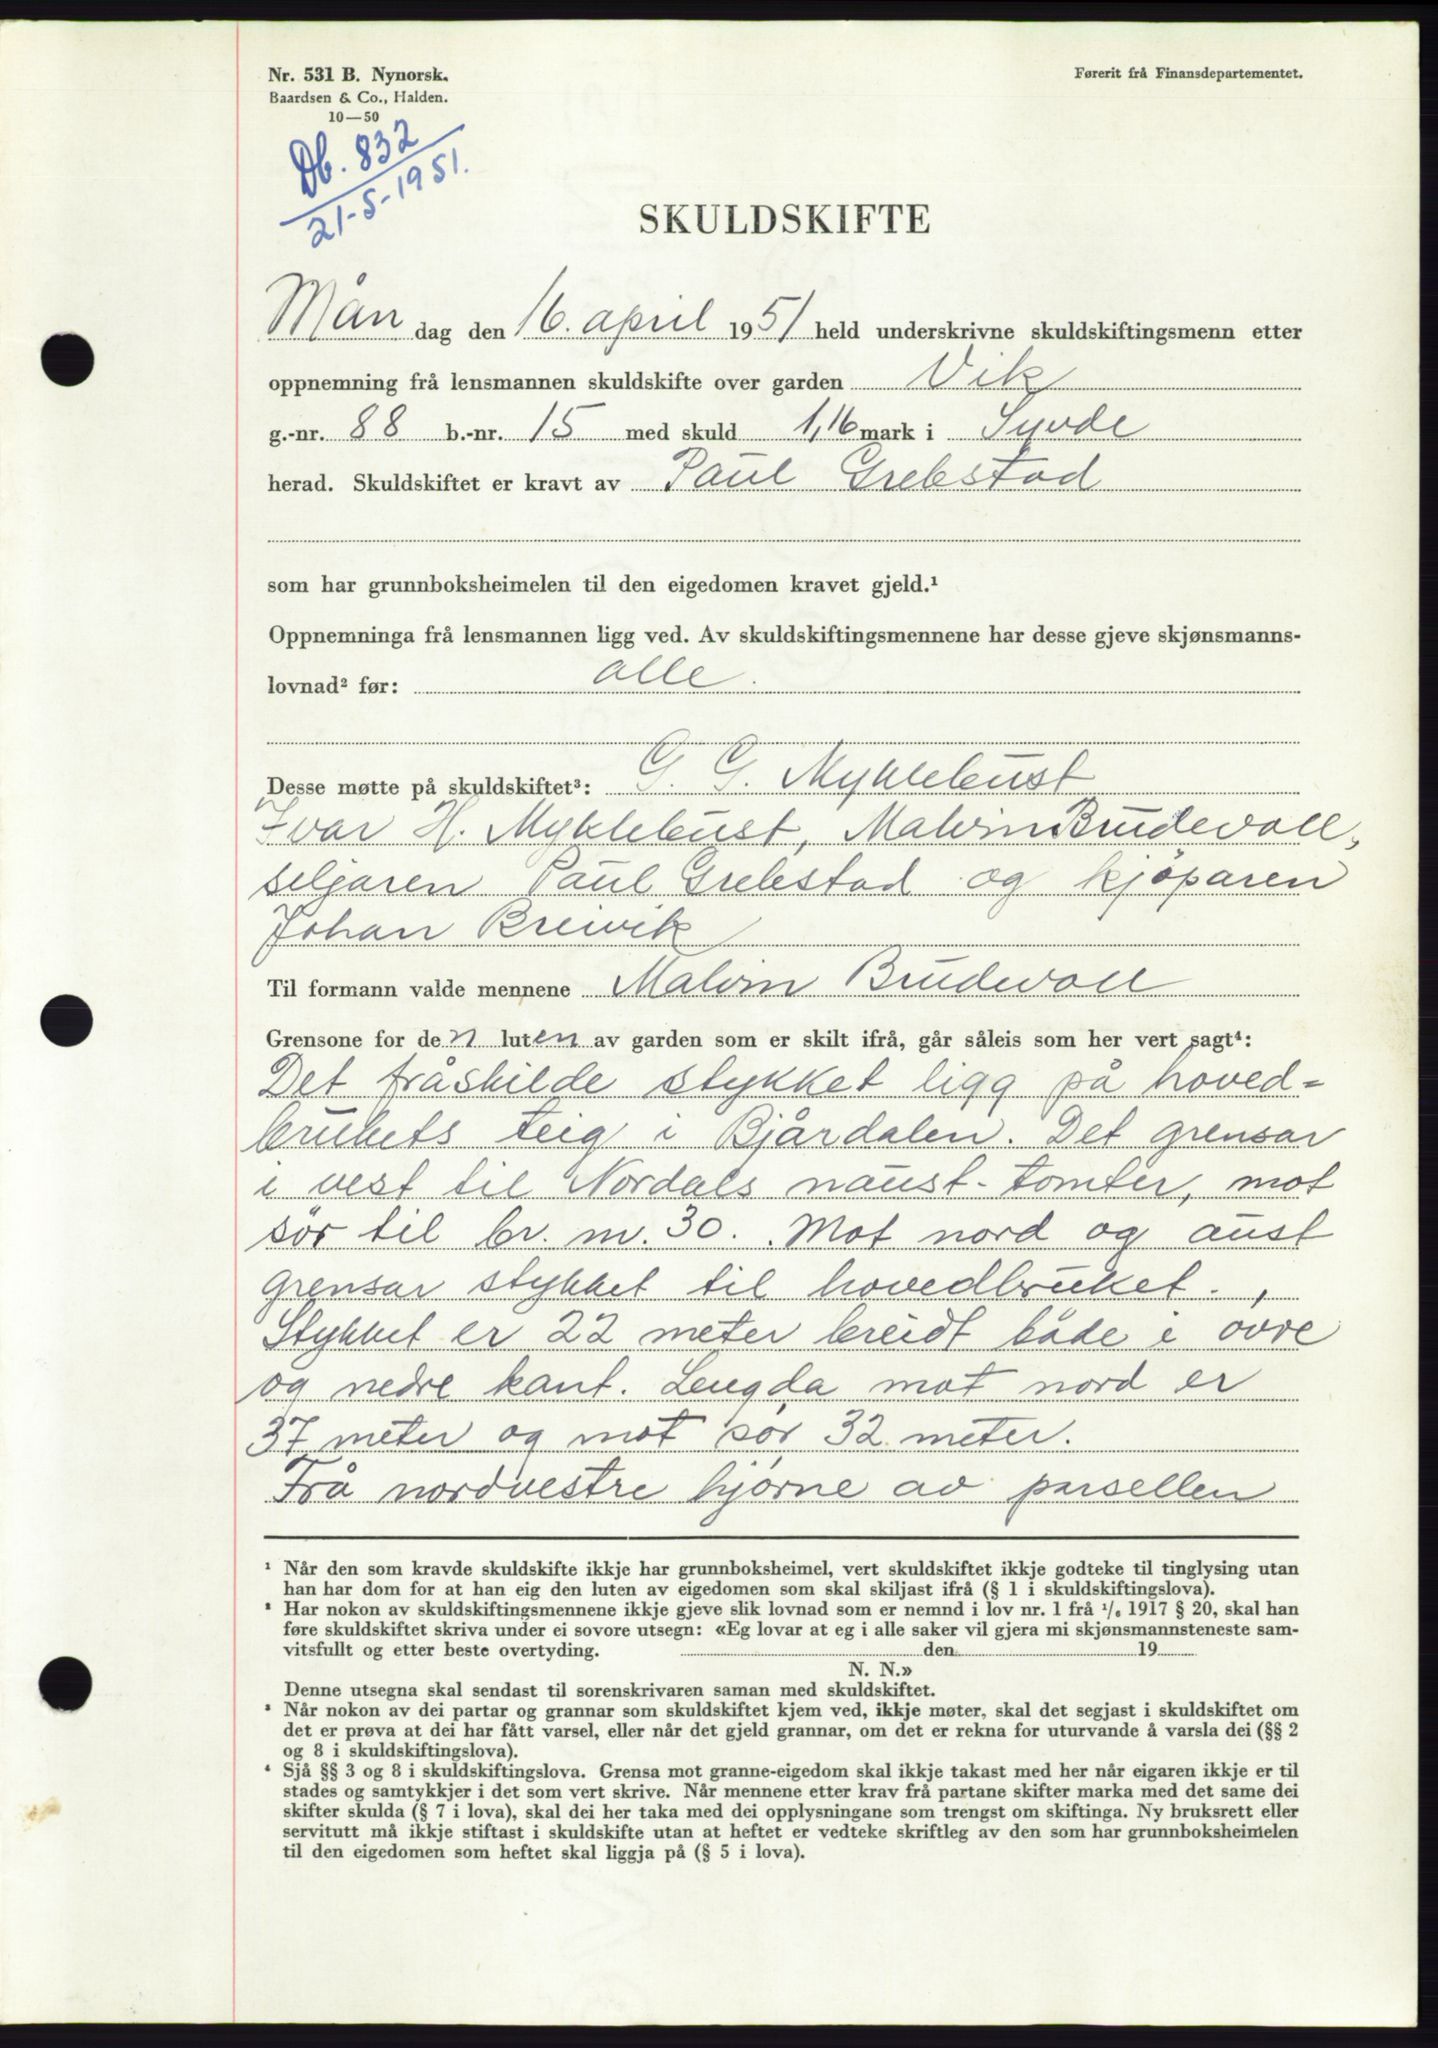 Nr. 531 B. Nynorsk.
Baardsen & Co., Halden.
10—50
Førerit frå Finansdepartementet.
Db. 832
21-5-1951.
SKULDSKIFTE
Mån dag den 16. april 1951 held underskrivne skuldskiftingsmenn etter
oppnemning frå lensmannen skuldskifte over garden Vik
g.-nr. 88 b.-nr. 15 med skuld 1,16 mark i Syvde
herad. Skuldskiftet er kravt av Paul Grebstad
som har grunnboksheimelen til den eigedomen kravet gjeld.¹
Oppnemninga frå lensmannen ligg ved. Av skuldskiftingsmennene har desse gjeve skjønsmanns-
lovnad² før: alle.
Desse møtte på skuldskiftet³: G. G. Myklebust,
Ivar H. Myklebust, Malvin Brudevoll,
seljaren Paul Grebstad og kjöparen
Johan Breivik
Til formann valde mennene Malvin Brudevoll
Grensone for den luten av garden som er skilt ifrå, går såleis som her vert sagt⁴:
Det fråskilde stykket ligg på hoved=
brukets teig i Bjårdalen. Det grensar
i vest til Nordals naust-tomter, mot
sör til br. nr. 30. Mot nord og aust
grensar stykket til hovedbruket.
Stykket er 22 meter breidt både i övre
og nedre kant. Lengda mot nord er
37 meter og mot sör 32 meter.
Frå nordvestre hjörne av parsellen
¹ Når den som kravde skuldskifte ikkje har grunnboksheimel, vert skuldskiftet ikkje godteke til tinglysing utan
han har dom for at han eig den luten av eigedomen som skal skiljast ifrå (§ 1 i skuldskiftingslova).
² Har nokon av skuldskiftingsmennene ikkje gjeve slik lovnad som er nemnd i lov nr. 1 frå 1/6 1917 § 20, skal han
føre skuldskiftet skriva under ei sovore utsegn: «Eg lovar at eg i alle saker vil gjera mi skjønsmannsteneste sam-
vitsfullt og etter beste overtyding. den 19
N. N.»
Denne utsegna skal sendast til sorenskrivaren saman med skuldskiftet.
³ Når nokon av dei partar og grannar som skuldskiftet kjem ved, ikkje møter, skal det segjast i skuldskiftet om
det er prøva at dei har fått varsel, eller når det gjeld grannar, om det er rekna for uturvande å varsla dei (§§ 2
og 8 i skuldskiftingslova).
⁴ Sjå §§ 3 og 8 i skuldskiftingslova. Grensa mot granne-eigedom skal ikkje takast med her når eigaren ikkje er til
stades og samtykkjer i det som vert skrive. Når mennene etter krav frå partane skifter marka med det same dei
skifter skulda (§ 7 i lova), skal dei her taka med dei opplysningane som trengst om skiftinga. Ny bruksrett eller
servitutt må ikkje stiftast i skuldskifte utan at heftet er vedteke skriftleg av den som har grunnboksheimelen
til den eigedomen som heftet skal liggja på (§ 5 i lova).